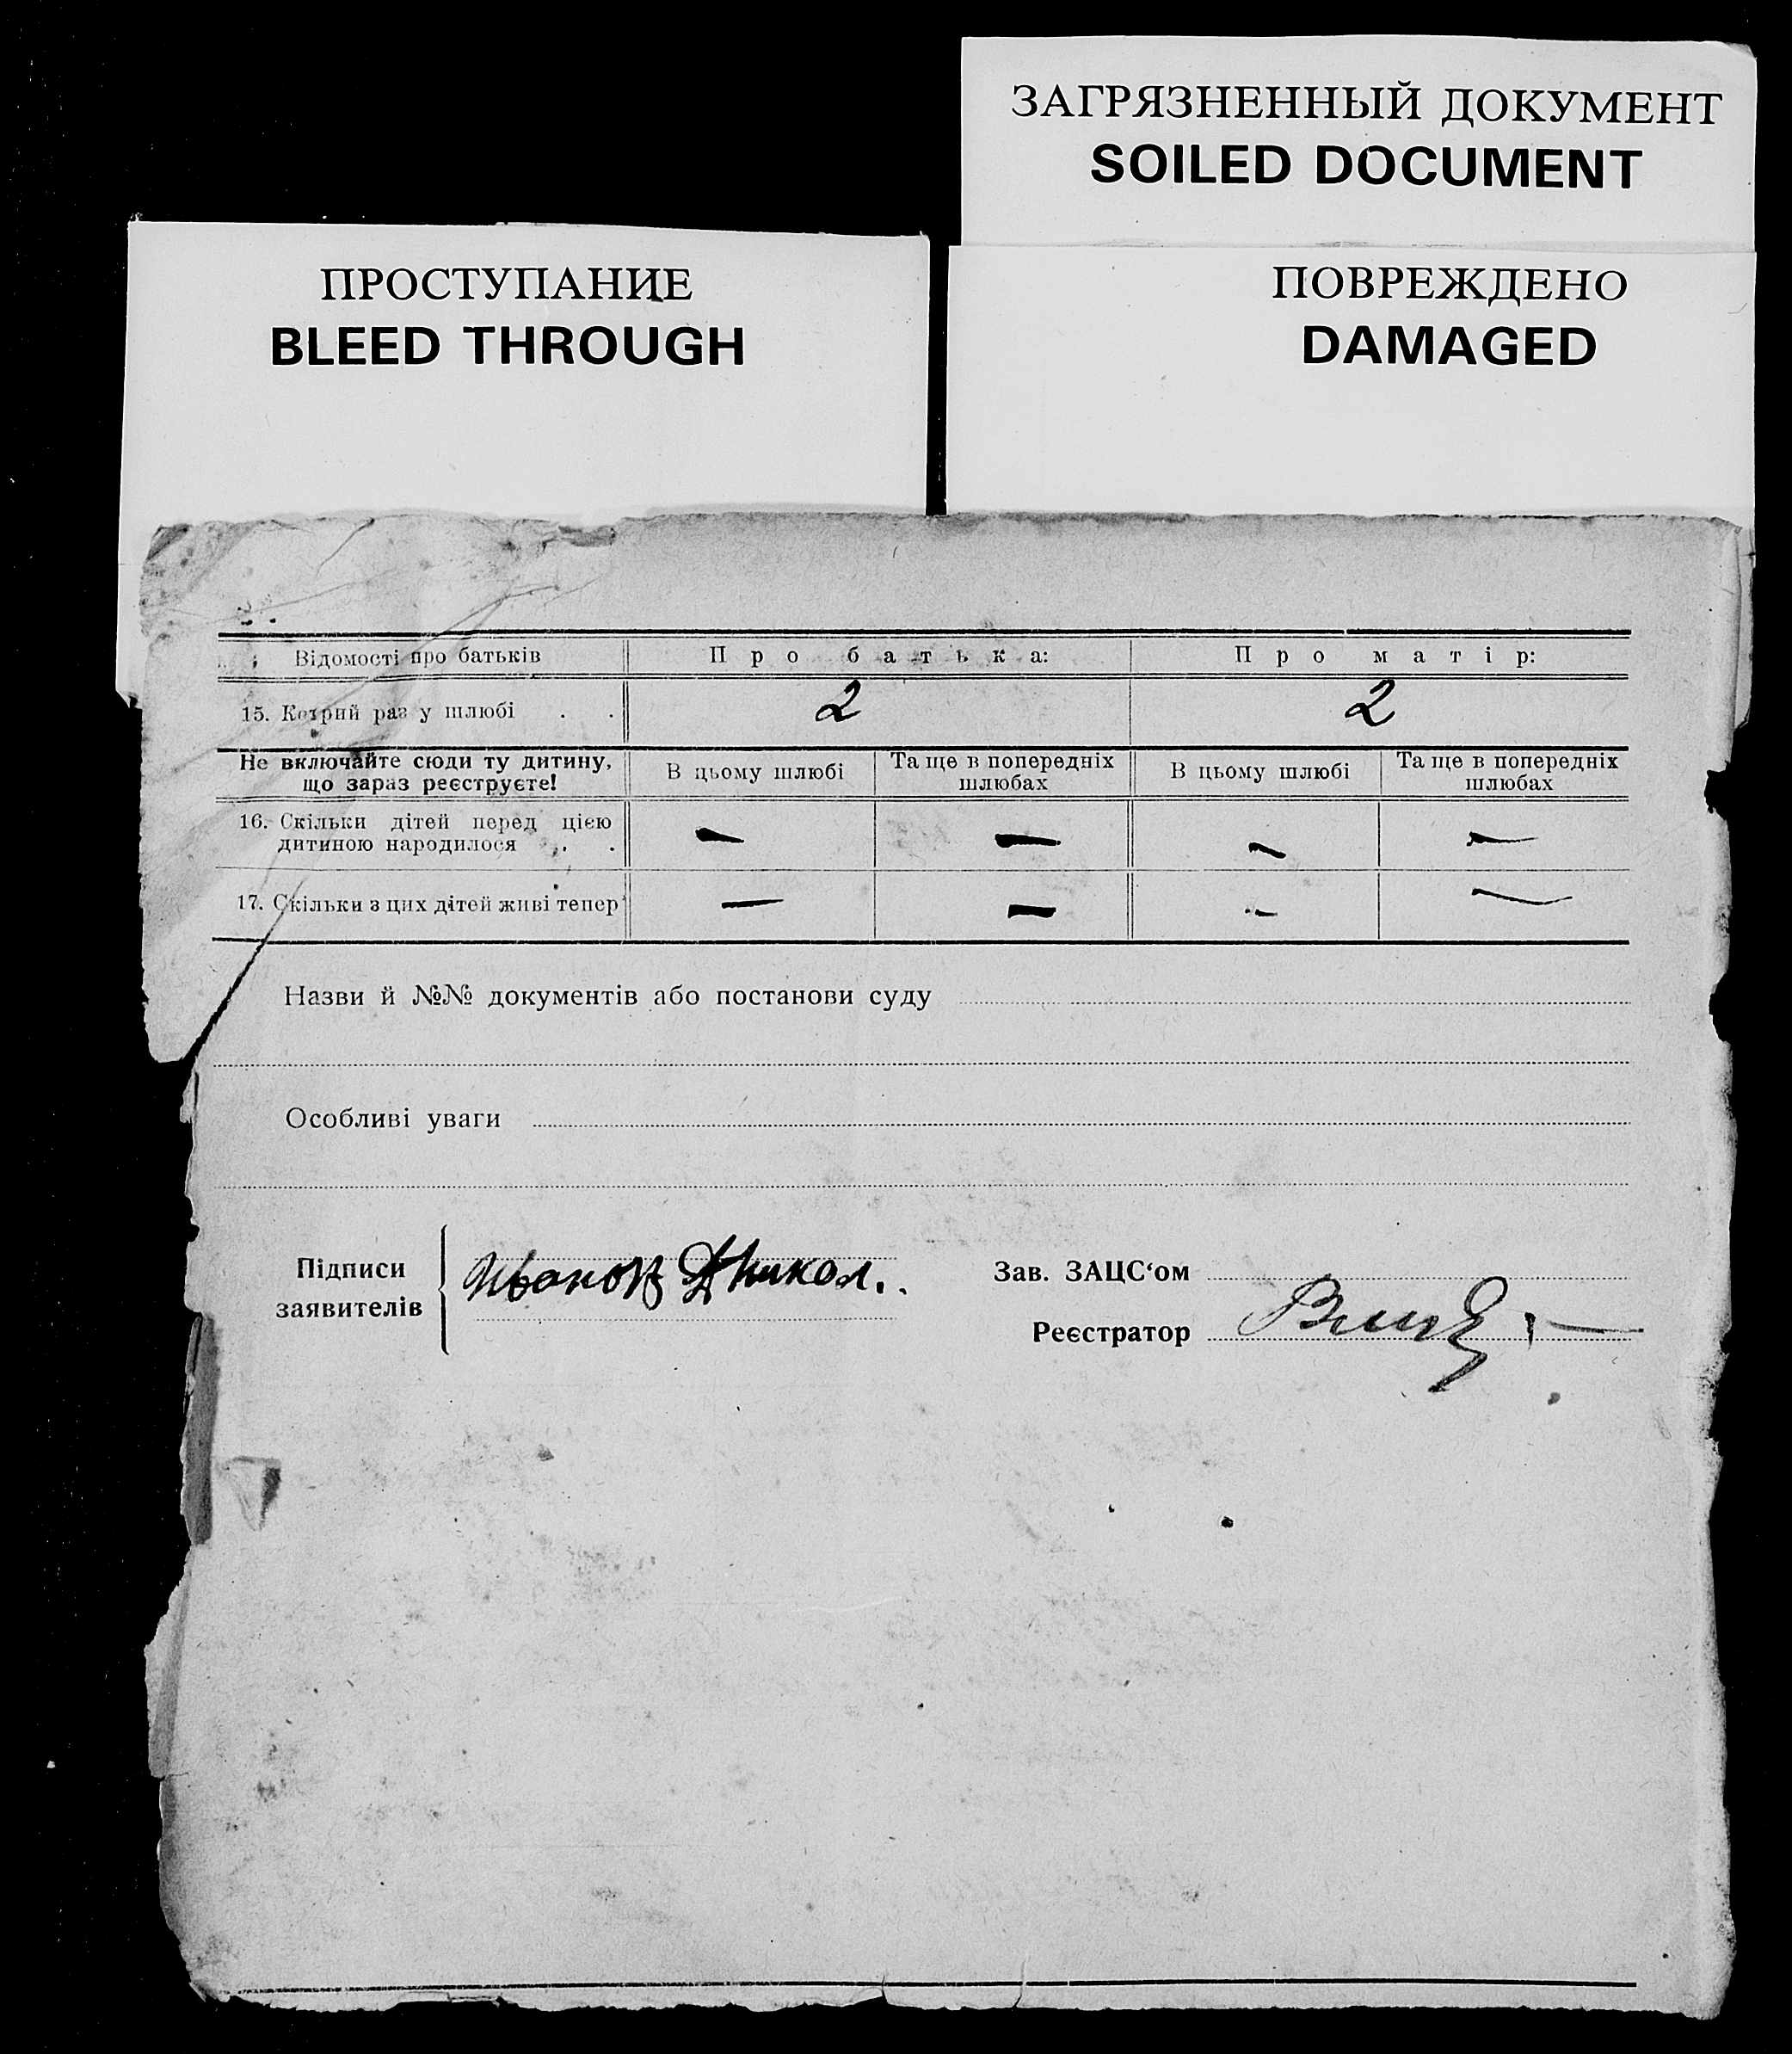 ЗАГРЯЗНЕННЫЙ ДОКУМЕНТ
SOILED DOCUMENT
ПРОСТУПАНИЕ
BLEED THROUGH
ПОВРЕЖДЕНО
DAMAGED
Відомості про батьків П р о б а т ь к а: П р о м а т і р:
15. Котрий раз у шлюбі . . 2 2
Не включайте сюди ту дитину, що зараз реєструєте! В цьому шлюбі Та ще в попередніх шлюбах В цьому шлюбі Та ще в попередніх шлюбах
16. Скільки дітей перед цією
дитиною народилося . . — — — —
17. Скільки з цих дітей живі тепер — — — —
Назви й №№ документів або постанови суду
Особливі уваги
Підписи
заявителів
Иванов Никол.
Зав. ЗАЦС‘ом
Реєстратор